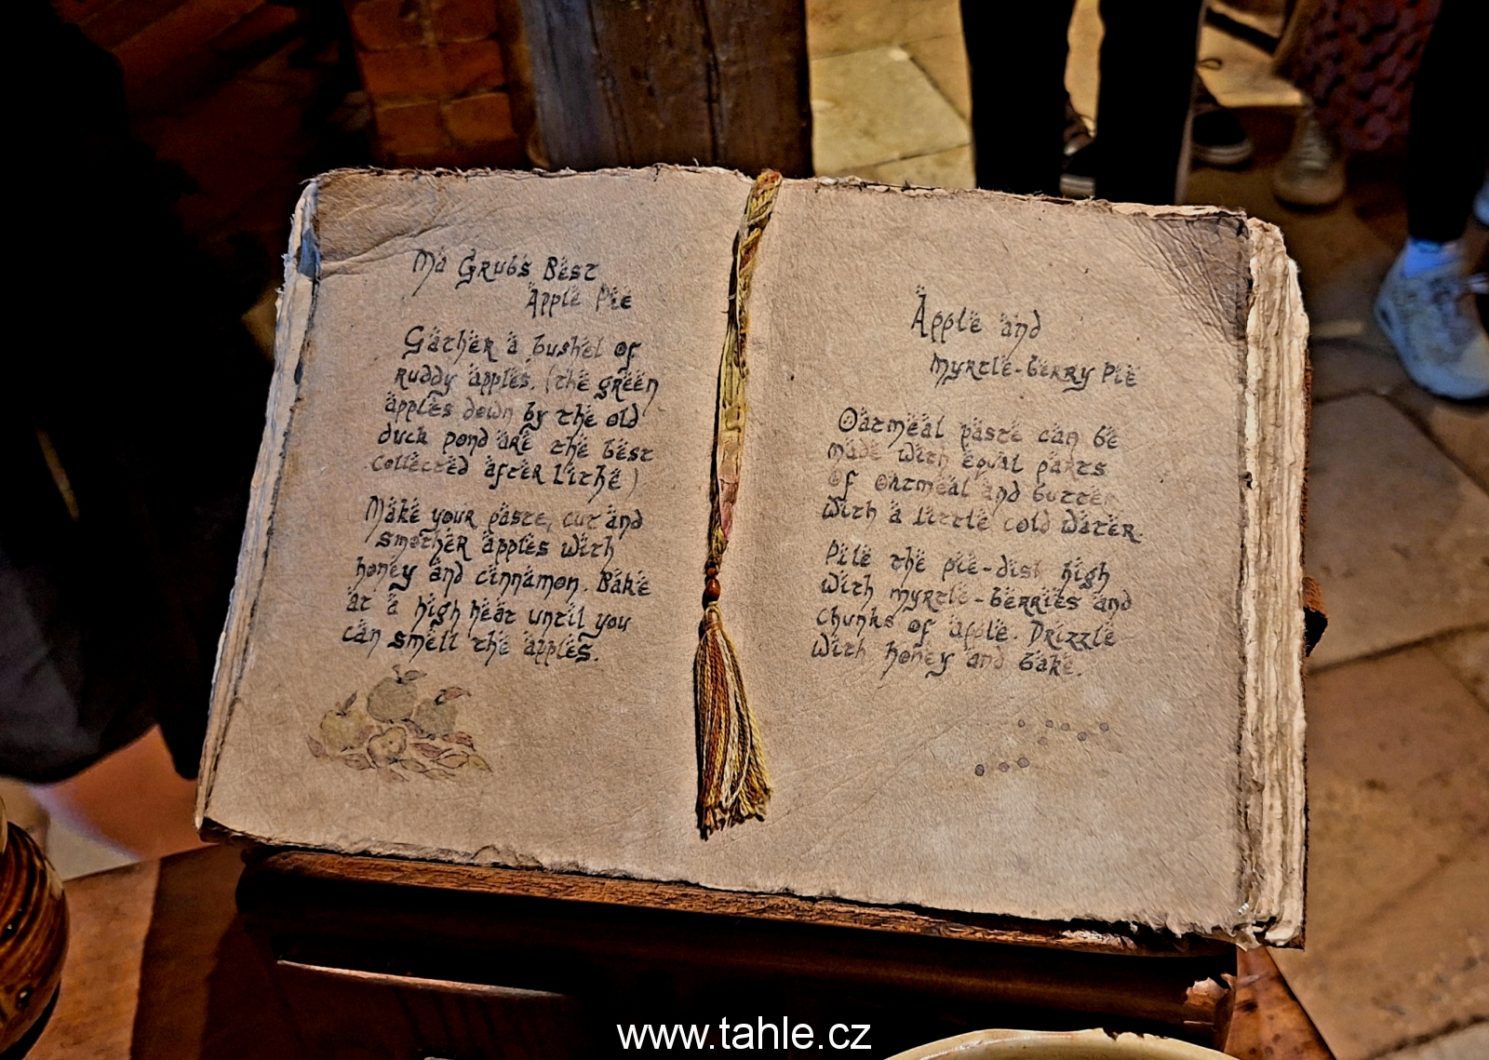 Ma Grubs Best
Apple Pie
Gather a bushel of
ruddy apples. (the green
apples down by the old
duck pond are the best
collected after Lithe)
Make your paste, cut and
smother apples with
honey and cinnamon. Bake
at a high heat until you
can smell the apples.
Apple and
myrtle-berry Pie
Oatmeal paste can be
made with equal parts
of oatmeal and butter
with a little cold water.
Pile the pie-dish high
with myrtle-berries and
chunks of apple. Drizzle
with honey and bake.
www.tahle.cz